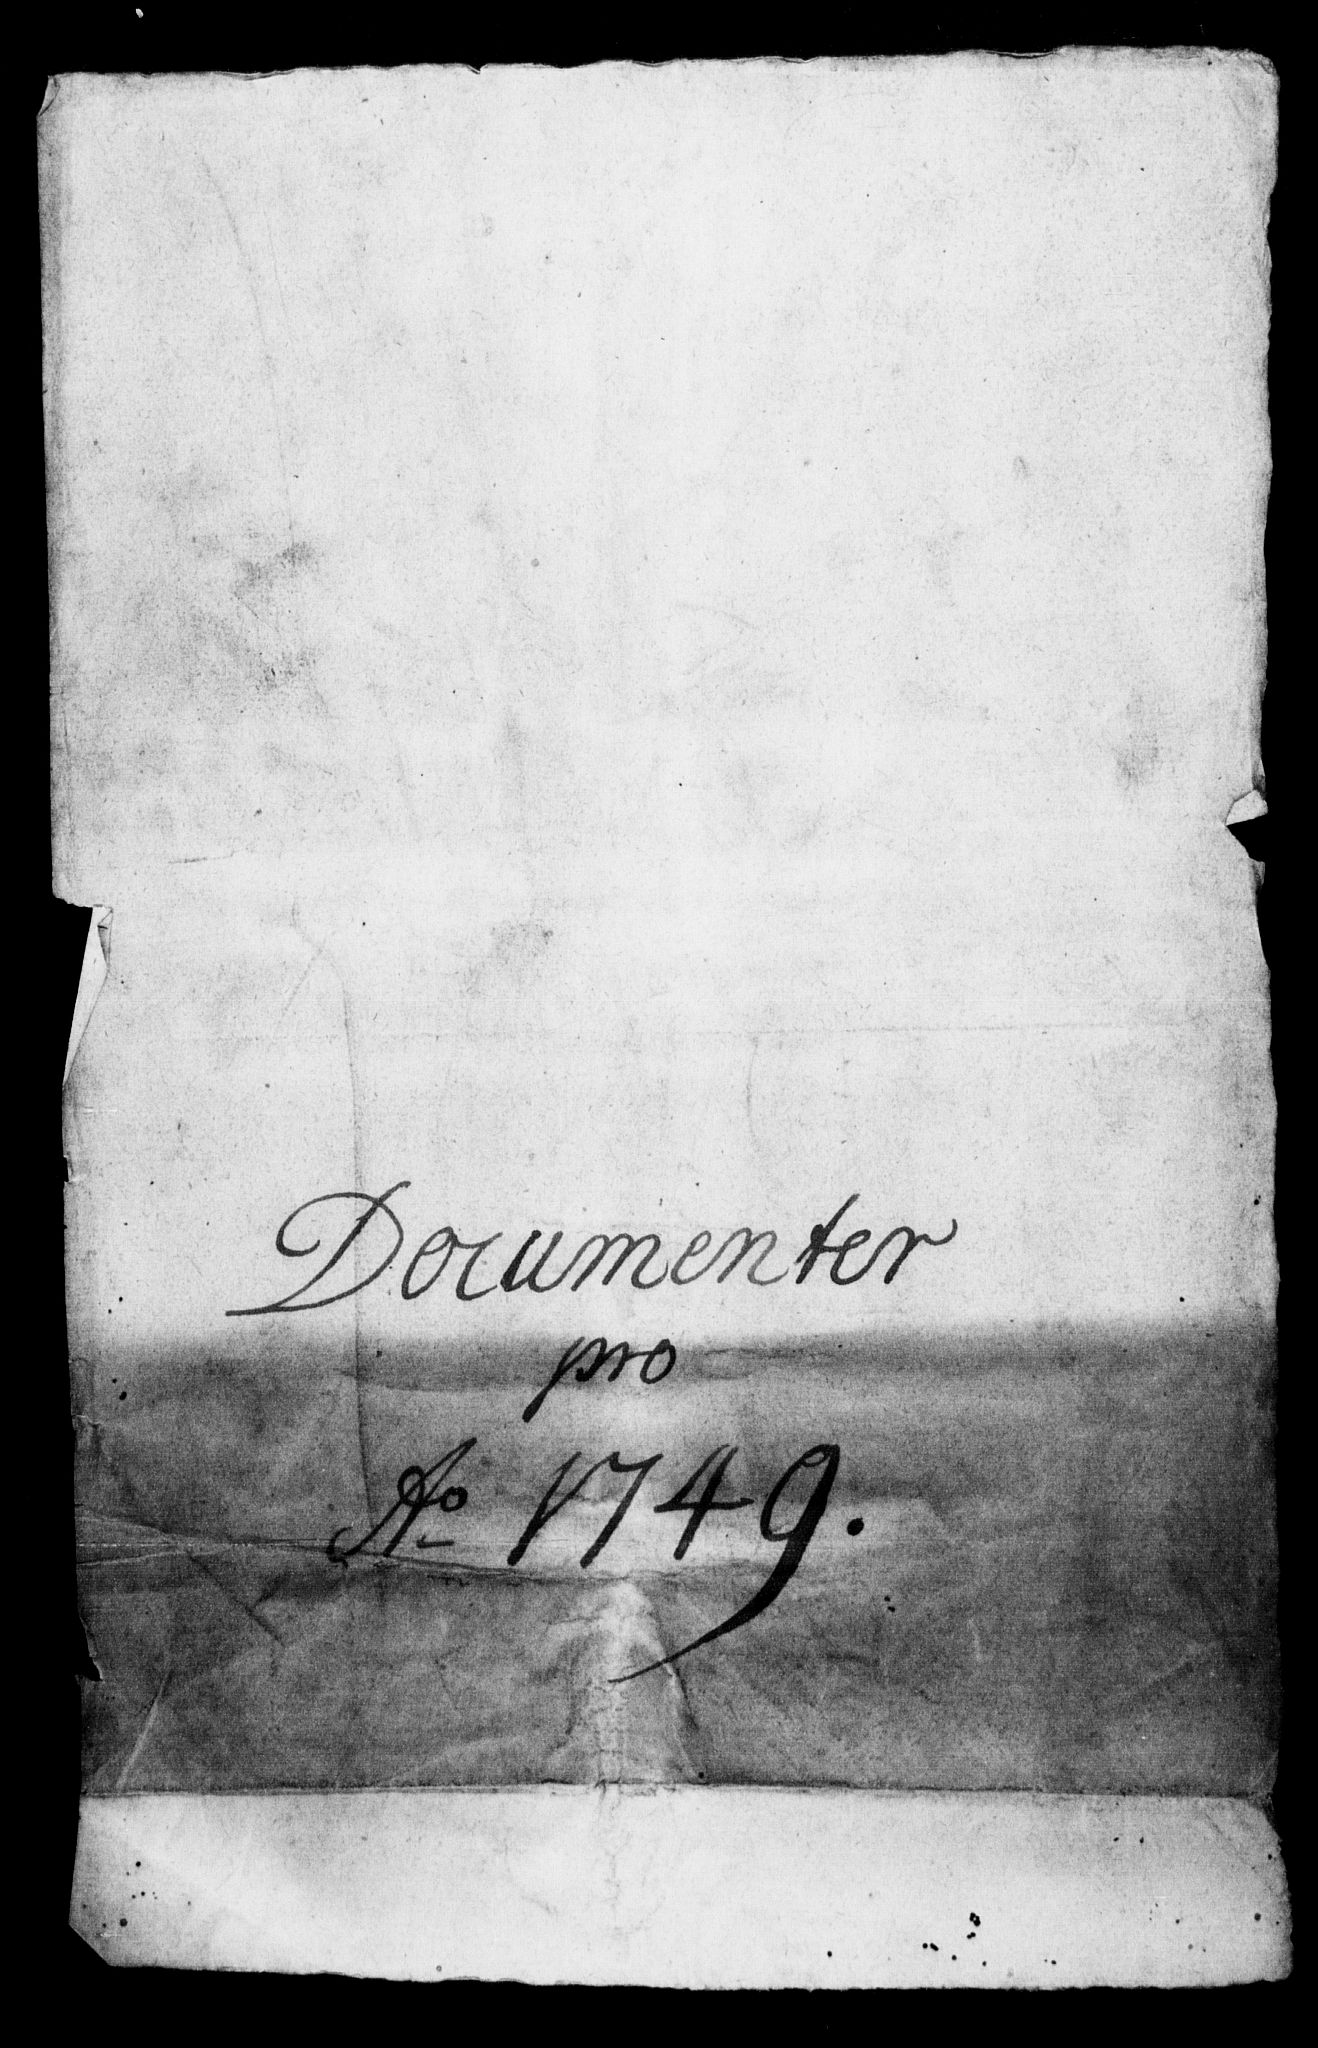 Documenter
pro
Ao 1749.